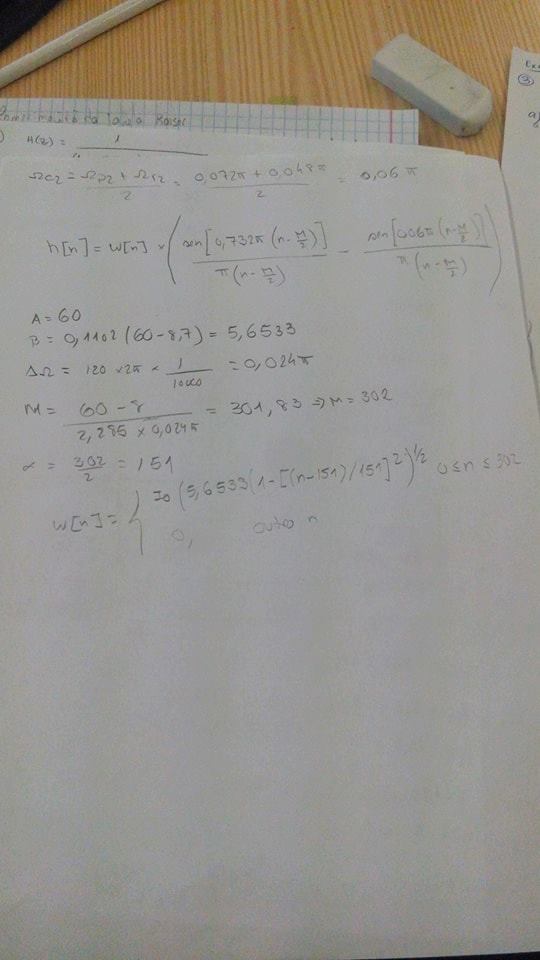 Kaiser
H(z) = 1
Ωc2 = Ωp2 + Ωr2 / 2 = 0,072π + 0,048π / 2 = 0,06 π
h[n] = w[n] × ( sen[0,732π (n - M/2)] / π(n - M/2) - sen[0,06π (n - M/2)] / π (n - M/2) )
A = 60
B = 0,1102 (60 - 8,7) = 5,6533
ΔΩ = 120 × 2π × 1/10000 = 0,024π
M = 60 - 8 / 2,285 × 0,024π = 301,83 ⇒ M = 302
α = 302/2 = 151
w[n] = { Io (5,6533 (1 - [(n - 151) / 151]²)^1/2 0 ≤ n ≤ 302
0, outro n
Exe
3
a)